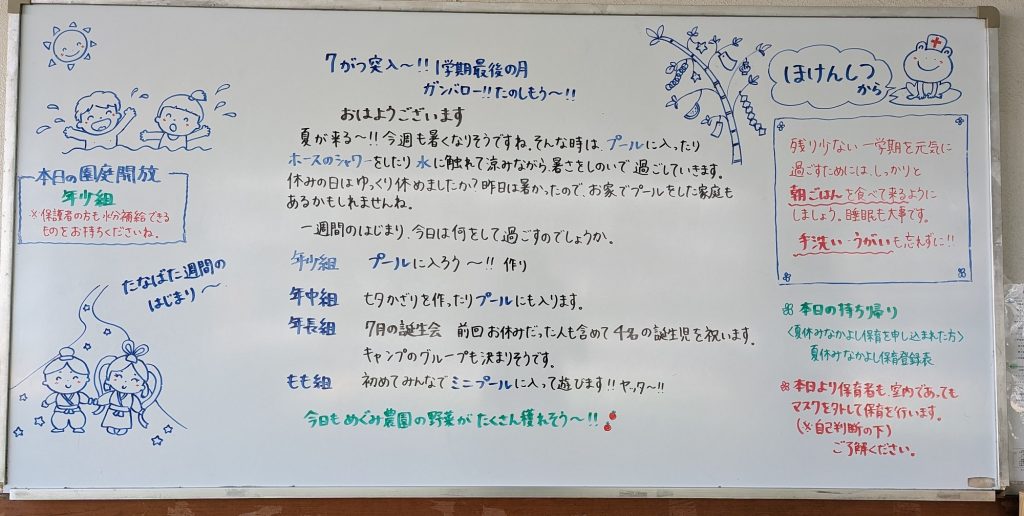 7がつ突入〜!! 1学期最後の月
ガンバロー!! たのしもう〜!!
おはようございます
夏が来る〜!! 今週も暑くなりそうですね、そんな時は プールに入ったり
ホースのシャワーをしたり 水に触れて涼みながら、暑さをしのいで 過ごしていきます。
休みの日はゆっくり休めましたか？昨日は暑かったので、お家でプールをした家庭も
あるかもしれませんね。
一週間のはじまり、今日は何をして過ごすのでしょうか。
年少組 プールに入ろう〜!! 作り
年中組 七夕かざりを作ったりプールにも入ります。
年長組 7月の誕生会 前回お休みだった人も含めて4名の誕生児を祝います。
キャンプのグループも決まりそうです。
もも組 初めてみんなでミニプールに入って遊びます!! ヤッター!!
今日もめぐみ農園の野菜がたくさん穫れそう〜!!
本日の園庭開放
年少組
※保護者の方も水分補給できる
ものをお持ちくださいね。
たなばた週間の
はじまり〜
ほけんしつ
から
残り少ない一学期を元気に
過ごすためには、しっかりと
朝ごはんを食べて来るように
しましょう。睡眠も大事です。
手洗い・うがいも忘れずに!!
本日の持ち帰り
〈夏休みなかよし保育を申し込まれた方〉
夏休みなかよし保育登録表
本日より保育者も、室内であっても
マスクを外して保育を行います。
(※自己判断の下)
ご了解ください。